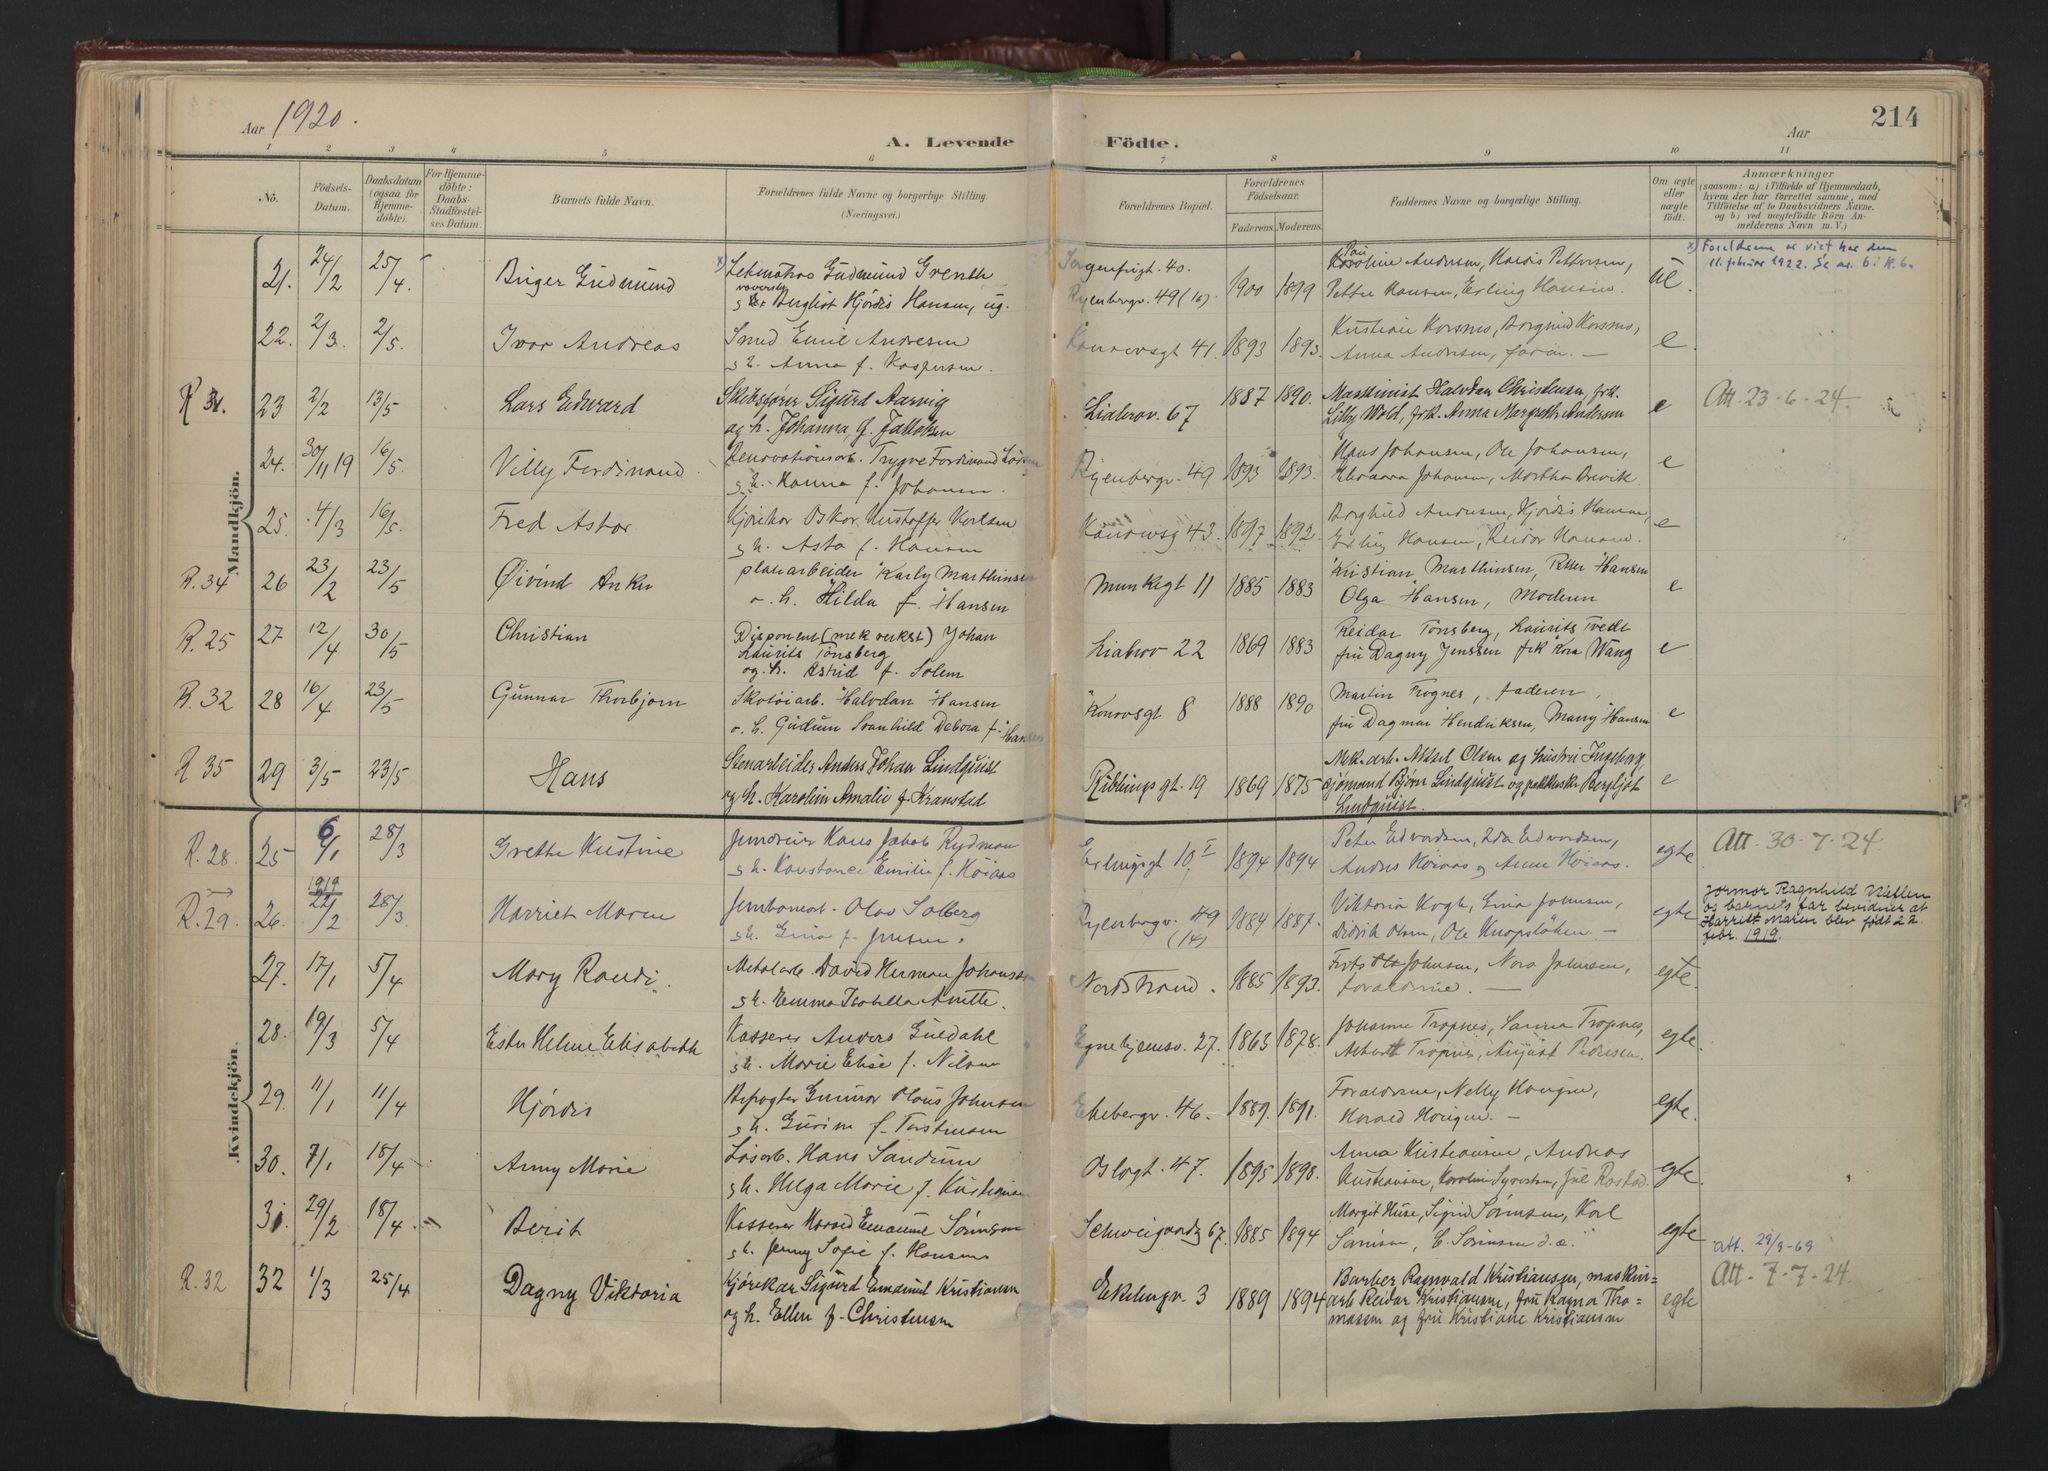 Aar 1920.
A. Levende
Födte.
Aar
214
1 2 3 4 5 6 7 8 9 10 11
No.
Födsels-
Datum.
Daabsdatum
(ogsaa for
Hjemme-
döbte).
For Hjemme-
döbte:
Daabs-
Stadfæstel-
ses Datum.
Barnets fulde Navn.
Forældrenes fulde Navne og borgerlige Stilling.
(Næringsvei.)
Forældrenes Bopæl.
Forældrenes
Födselsaar.
Faderens. Moderens.
Faddernes Navne og borgerlige Stilling.
Om ægte
eller
uægte
födt.
Anmærkninger
(saasom: a.) i Tilfælde af Hjemmedaab,
hvem der har forrettet samme, med
Tilföielse af to Daabsvidners Navne.
og b) ved uægtefödte Börn An-
melderens Navn m. V.)
Mandkjön.
21. 24/2 25/4. Birger Gudmund
Gudmund Grenth
Bergliot Hjördis Hansen, ug.
Sorgenfrigt. 40.
Ryenbergv. 49 (16). 1900 1899
Andersen, Hardis Pettersen,
Petter Hansen, Erling Hansen.
x) Foreldrene er viet her den
11. februar 1922. Se nr. 6 i K. b.
22. 2/3. 2/5. Ivar Andreas
Smed Emil Andresen
o h. Anna f. Kaspersen.
41. 1893 1893.
Anna Andersen, faren. — e
R 31. 23 2/2 13/5 Lars Edward
Skibsförer Sigurd Aarvig
og h. Johanna f. Jakobsen
Liabrov. 67 1887 1890.
Maskinist Halvdan Christensen, frk.
Lilly Wold, frk. Anna Margrethe Andersen e
Att. 23-6-24.
24. 30/11 19 16/5. Villy Ferdinand
Renovationsarb. Trygve Ferdinand
o h. Hanna f. Johansen.
Ryenbergv. 49 1893 1893.
Hans Johansen, Ole Johansen,
Johansen, Martha Brevik. e
25. 4/3 16/5. Fred Asbor
Kjörekar Oskar Kristoffer Karlsen
o h. Asta f. Hansen
Konowsg 43. 1897 1892.
Borghild Andersen, Hjördis Hansen,
Erling Hansen, Reidar Hansen. e
R. 34 26 23/2 23/5 Öivind Anker
platearbeider Karly Marthinsen
o. h. Hilda f. Hansen
Munkegt 11 1885 1883
Kristian Marthinsen, Petter Hansen
Olga Hansen, Moderen e
R. 25 27 12/4 30/5 Christian
Disponent (mek verkst) Johan
Laurits Tönsberg
og. h. Astrid f. Solem
Liabrov 22 1869 1883
Reidar Tönsberg, Laurits Tvedt
fru Dagny Jenssen frk Kora Wang e
R. 32 28 16/4 23/5 Gunnar Thorbjörn
Skotöiarb. Halvdan Hansen
o. h. Gudrun Svanhild Debora f. Hansen
Konovsgt 8 1888 1890
Martin Trognes, faderen,
fru Dagmar Hendriksen, Marry Hansen e
R 35 29 3/5 23/5 Hans
Stenarbeider Anders Johan Lindquist
og h. Karolin Amalie f. Kranstad
Küblings gt. 19 1869 1875
Mek. arb. Aksel Olsen og hustru Ingeborg,
sjömand Björn Lindquist og pakkerske Bergljot
Lindquist. e
Kvindekjön.
R. 28. 25 6/1 28/3 Grethe Kristine
Hans Jakob Rydman
o h. Konstance Emilie f. Höiaas
Erlingsgt 10 I 1894 1894
Peter Edvardsen, Ida Edvardsen,
Anders Höiaas og Anne Höiaas. egte
Att. 30-7-24.
R. 29. 26. 1919 22/2 28/3. Harriet Maren
Jernbanearb. Olav Solberg
o h. Gina f. Jensen.
Ryenbergv. 49
(14) 1884 1887.
Viktoria Kogh, Gina Johnsen,
Didrik Olsen, Ole — egte
Formor Ragnhild
og barnets far bevidner at
Harriett Maren blev født 22
febr. 1919.
27. 17/1 5/4 Mary Randi.
Metalarb. David Herman Johansen
o h. Emma Isabella Anette.
Nordstrand. 1885 1893.
Frits Johnsen, Nora Johnsen,
foraldrene. — egte
28. 19/3 5/4 Ester Helene Elisabeth
Kasserer Anders Guldahl
o h. Marie Elise f. Nilsen
Egnehjemsv. 27. 1863 1878.
Johanne Tropnes, Sanna Tropnes,
Tropnes, August Pedersen. egte.
29. 11/1 11/4 Hjördis
Gunnar Olaus Johnsen
o h. Gurine f. Torstensen
Ekebergv. 46. 1889. 1891.
Foraldrene, Nelly Haugen,
Harald Haugen. — egte.
30. 7/1 18/4 Anny Marie
Hans Sandrum
o h. Helga Marie f. Kristiansen
Oslogt. 47. 1895 1898.
Anna Kristiansen, Andreas
Kristiansen, Karoline Syvertsen, Jul Rostad. egte.
31. 29/2 18/4 Berit
Kasserer Harald Emanuel Sörensen
o h. Jenny Sofie f. Hansen
Schweigaardsg 67. 1885 1894
Margit Huse, Sigrid Sörensen, Karl
Sörensen, C. Sörensen d. e. egte
att. 29/9-69
R. 32 32 1/3 25/4 Dagny Viktoria
Kjörekar Sigurd Emanuel Kristiansen
og h. Ellen f. Christensen
Ekebergv. 3 1889 1894
Barber Ragnvald Kristiansen, maskin=
arb Reidar Kristiansen, fru Ragna Tho=
massen og fru Kristiane Kristiansen egte
Att. 7-7-24.